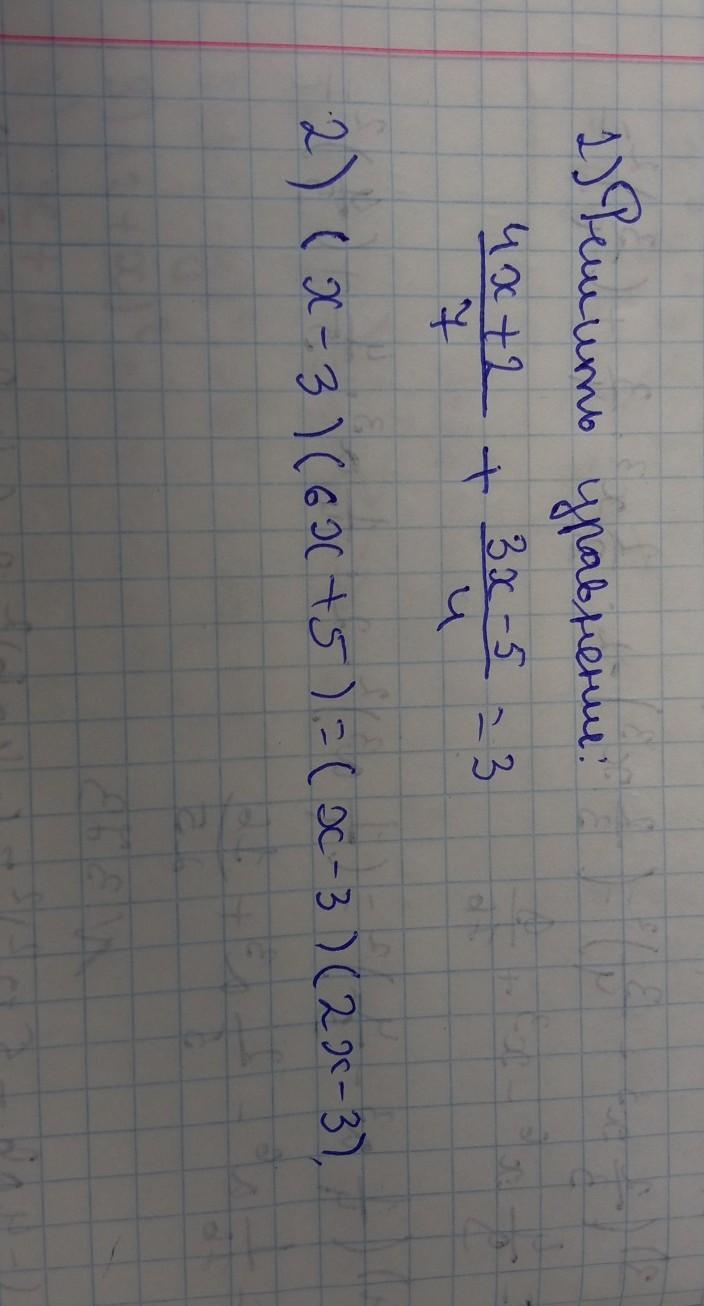 1) Решить уравнение:
4x+2/7 + 3x-5/4 = 3
2) (x-3)(6x+5)=(x-3)(2x-3),